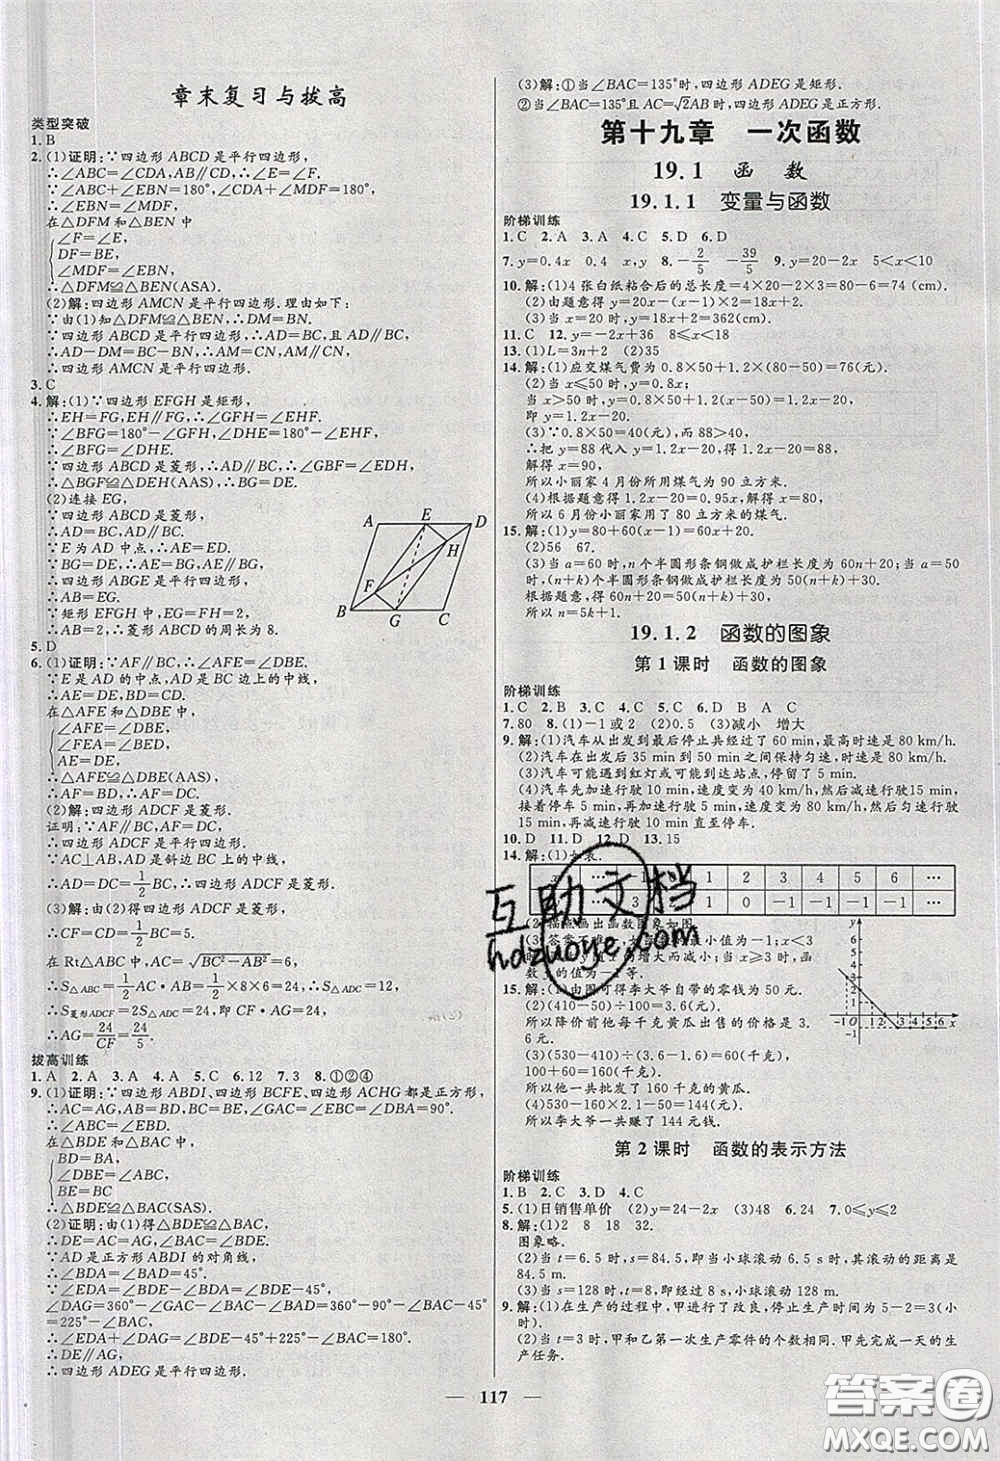 章末复习与拔高
类型突破
1. B
2. (1)证明:∵四边形ABCD是平行四边形,
∴∠ABC=∠CDA,AB∥CD,∴∠E=∠F.
∵∠ABC+∠EBN=180°,∠CDA+∠FDM=180°,
∴∠EBN=∠MDF,
在△DFM和△BEN中
∠F=∠E,
DF=BE,
∠MDF=∠EBN,
∴△DFM≌△BEN(ASA).
(2)解:四边形AMCN是平行四边形.理由如下:
∵由(1)知△DFM≌△BEN,∴DM=BN.
∵四边形ABCD是平行四边形,∴AD=BC,且AD∥BC,
∴AD-DM=BC-BN,∴AM=CN,AM∥CN,
∴四边形AMCN是平行四边形.
3. C
4. 解:(1)∵四边形EFGH是矩形,
∴EH=FG,EH∥FG,∴∠GFH=∠EHF.
∵∠BFG=180°-∠GFH,∠DHE=180°-∠EHF,
∴∠BFG=∠DHE.
∵四边形ABCD是菱形,∴AD∥BC,∴∠GBF=∠EDH,
∴△BGF≌△DEH(AAS),∴BG=DE.
(2)连接EG,
∵四边形ABCD是菱形,
∴AD=BC,AD∥BC.
∵E为AD中点,∴AE=ED.
∵BG=DE,∴AE=BG,AE∥BG,
∴四边形ABGE是平行四边形,
∴AB=EG.
∵矩形EFGH中,EG=FH=2,
∴AB=2,∴菱形ABCD的周长为8.
A E D
H
F
B G C
5. D
6. (1)证明:∵AF∥BC,∴∠AFE=∠DBE.
∵E是AD的中点,AD是BC边上的中线,
∴AE=DE,BD=CD,
在△AFE和△DBE中,
∠AFE=∠DBE,
∠FEA=∠BED,
AE=DE,
∴△AFE≌△DBE(AAS),
∴AF=BD,∴AF=DC.
(2)解:四边形ADCF是菱形.
证明:∵AF∥BC,AF=DC,
∴四边形ADCF是平行四边形,
∵AC⊥AB,AD是斜边BC上的中线,
∴AD=DC=1/2BC,∴四边形ADCF是菱形.
(3)解:由(2)得四边形ADCF是菱形,
∴CF=CD=1/2BC=5.
在Rt△ABC中,AC=√(BC²-AB²)=6,
∴S△ABC=1/2AC·AB=1/2×8×6=24,∴S△ADC=12,
∴S菱形ADCF=2S△ADC=24,即CF·AG=24,
∴AG=24/CF=24/5.
拔高训练
1. A 2. A 3. A 4. A 5. C 6. 12 7. 3 8. ①②④
9. (1)证明:∵四边形ABDI、四边形BCFE、四边形ACHG都是正方形,
∴AC=AG,AB=BD,BC=BE,∠GAC=∠EBC=∠DBA=90°.
∴∠ABC=∠EBD.
在△BDE和△BAC中,
BD=BA,
∠DBE=∠ABC,
BE=BC
∴△BDE≌△BAC(SAS).
(2)证明:由(1)得△BDE≌△BAC,
∴DE=AC=AG,∠BAC=∠BDE.
∵AD是正方形ABDI的对角线,
∴∠BDA=∠BAD=45°.
∵∠EDA=∠BDE-∠BDA=∠BDE-45°,
∠DAG=360°-∠GAC-∠BAC-∠BAD=360°-90°-∠BAC-45°
=225°-∠BAC,
∴∠EDA+∠DAG=∠BDE-45°+225°-∠BAC=180°.
∴DE∥AG,
∴四边形ADEG是平行四边形.
(3)解:①当∠BAC=135°时,四边形ADEG是矩形.
②当∠BAC=135°且AC=√2AB时,四边形ADEG是正方形.
第十九章 一次函数
19.1 函 数
19.1.1 变量与函数
阶梯训练
1. C 2. A 3. A 4. C 5. D 6. D
7. y=0.4x 0.4 x,y 8. -2/5 -39/5 9. y=20-2x 5<x<10
10. 解:(1)4张白纸粘合后的总长度=4×20-2×3=80-6=74(cm).
(2)由题意得y=20x-(x-1)×2=18x+2.
(3)当x=20时,y=18x+2=362(cm).
11. C 12. y=-2x+36 8≤x<18
13. (1)L=3n+2 (2)35
14. 解:(1)应交煤气费为0.8×50+1.2×(80-50)=76(元).
(2)当x≤50时,y=0.8x;
当x>50时,y=0.8×50+1.2(x-50)=1.2x-20,
即y=1.2x-20.
(3)∵0.8×50=40(元),而88>40,
∴把y=88代入y=1.2x-20,得88=1.2x-20,
解得x=90,
所以小丽家4月份所用煤气为90立方米.
(4)根据题意得1.2x-20=0.95x,解得x=80,
所以6月份小丽家用了80立方米的煤气.
15. 解:(1)y=80+60(x-1)=60x+20.
(2)56 67.
(3)当a=60时,n个半圆形条钢做成护栏长度为60n+20;当a=50
时,(n+k)个半圆形条钢做成护栏长度为50(n+k)+30,
根据题意,得60n+20=50(n+k)+30,
所以n=5k+1.
19.1.2 函数的图象
第1课时 函数的图象
阶梯训练
1. C 2. D 3. A 4. C 5. C 6. D B A C
7. 80 8. (1)-1或2 (2)0.5 (3)减小 增大
9. 解:(1)汽车从出发到最后停止共经过了60 min,最高时速是80 km/h.
(2)汽车在出发后35 min到50 min保持匀速,时速是80 km/h.
(3)汽车可能遇到红灯或可能到达站点,停留了5 min.
(4)汽车先加速行驶10 min,速度变为40 km/h,然后减速行驶10 min,
接着停车5 min,再加速行驶10 min,速度变为80 km/h,然后匀速行驶
15 min,最后减速行驶10 min直至停车.
10. D 11. D 12. D 13. 15
14. 解:(1)如表.
x … -1 1 2 3 4 5 6 …
… 3 1 0 -1 -1 -1 -1 …
(2)描点画出函数图象如图.
(3)答案不唯一,如函数的最小值为-1;x<3
时,函数y的值随x的增大而减小;当x≥3时,函
数y的值为-1等.
6
5
4
3
2
1
-1 O 1 2 3 4 5 6 x
-1
15. 解:(1)由图可得李大爷自带的零钱为50元.
(2)(410-50)÷100=3.6(元),
所以降价前他每千克黄瓜出售的价格是3.
6元.
(3)(530-410)÷(3.6-1.6)=60(千克),
所以100+60=160(千克),
所以他一共批发了160千克的黄瓜.
(4)530-160×2.1-50=144(元),
所以李大爷一共赚了144元钱.
第2课时 函数的表示方法
阶梯训练
1. B 2. C 3. D 4. C
5. (1)日销售单价 (2)y=24-2x (3)48 6. 24 7. 0≤y≤2
8. 解:(1)2 8 18 32.
图象略.
(2)当t=6.5时,s=84.5,即当小球滚动6.5 s时,其滚动的距离是
84.5 m.
(3)当s=128时,t=8,即经过8 s,小球滚动128 m.
9. 解:(1)在生产的过程中,甲进行了改良,停止生产的时间为5-2=3(小
时).
(2)当t=3时,甲和乙第一次生产零件的个数相同.甲先完成一天的生
产任务.
117
互助文档
hdzuoye.com
答案圈
MXQE.COM